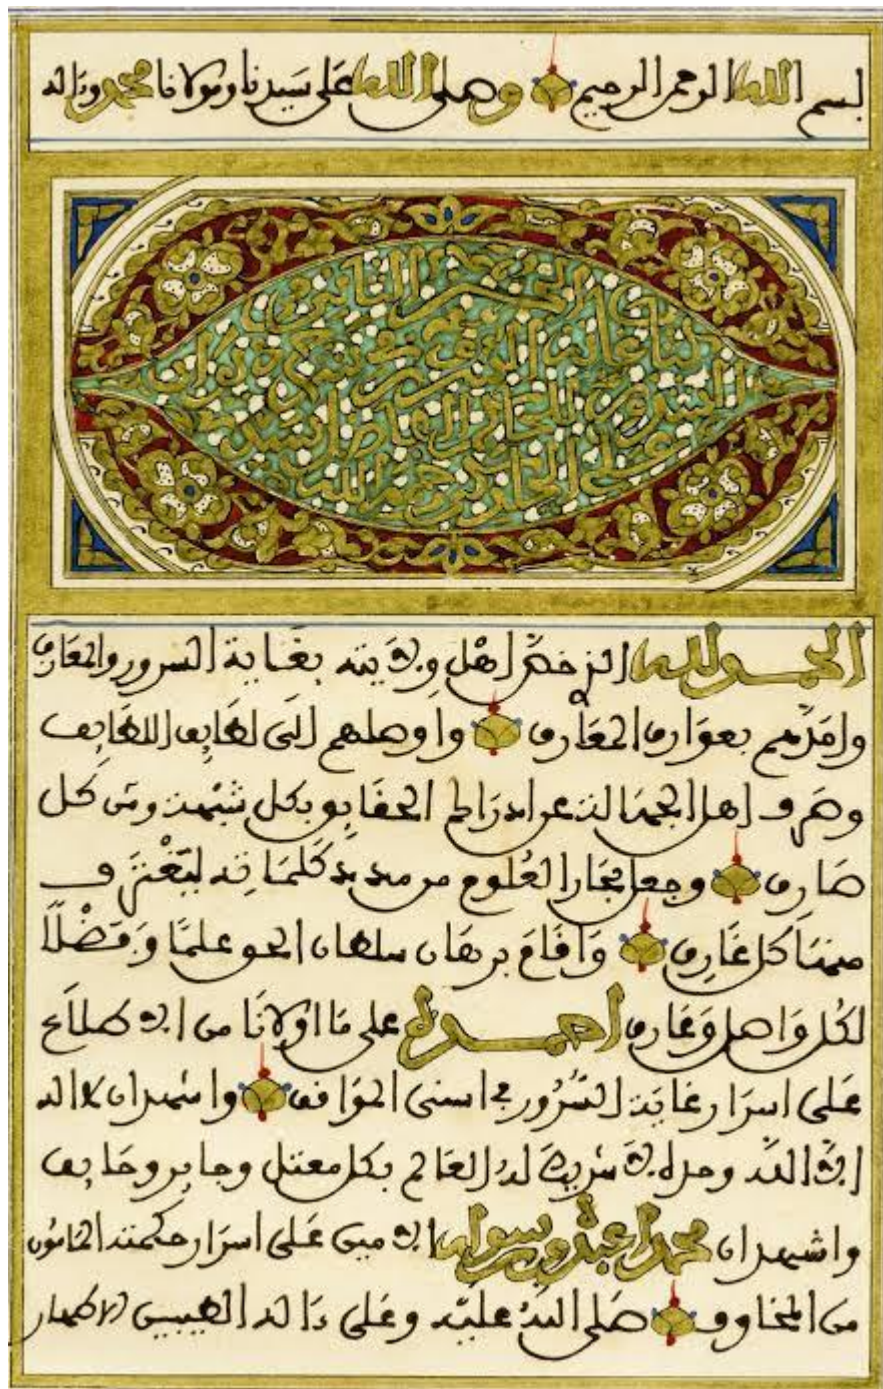 بسم الله الرحمن الرحيم وصلى الله على سيدنا ومولانا محمد وءاله
الجزء الثاني من
غاية السرور
رحمه الله
الحمد لله الذي خص أهل ولايته بغاية السرور والمعارف
وأمدهم بعوارف المعارف وأوصلهم إلى لطايف اللطايف
وصرف أهل الجهالة عن ادراك الحقايق بكل شبهة ومن كل
صارف وجعل بحار العلوم من مديد كلماته ليغترف
منها كل غارف وأقام برهان سلطان الحق علما وفضلا
لكل واصل وعارف أحمده على ما أولانا من الاطلاع
على اسرار غاية السرور في اسنى المواقف واشهد ان لا اله
الا الله وحده لا شريك له العالم بكل معتل وجابر وحايف
واشهد ان محمدا عبده ورسوله الامين على اسرار حكمته المامون
من المخاوف صلى الله عليه وعلى ءاله الطيبين الاطهار